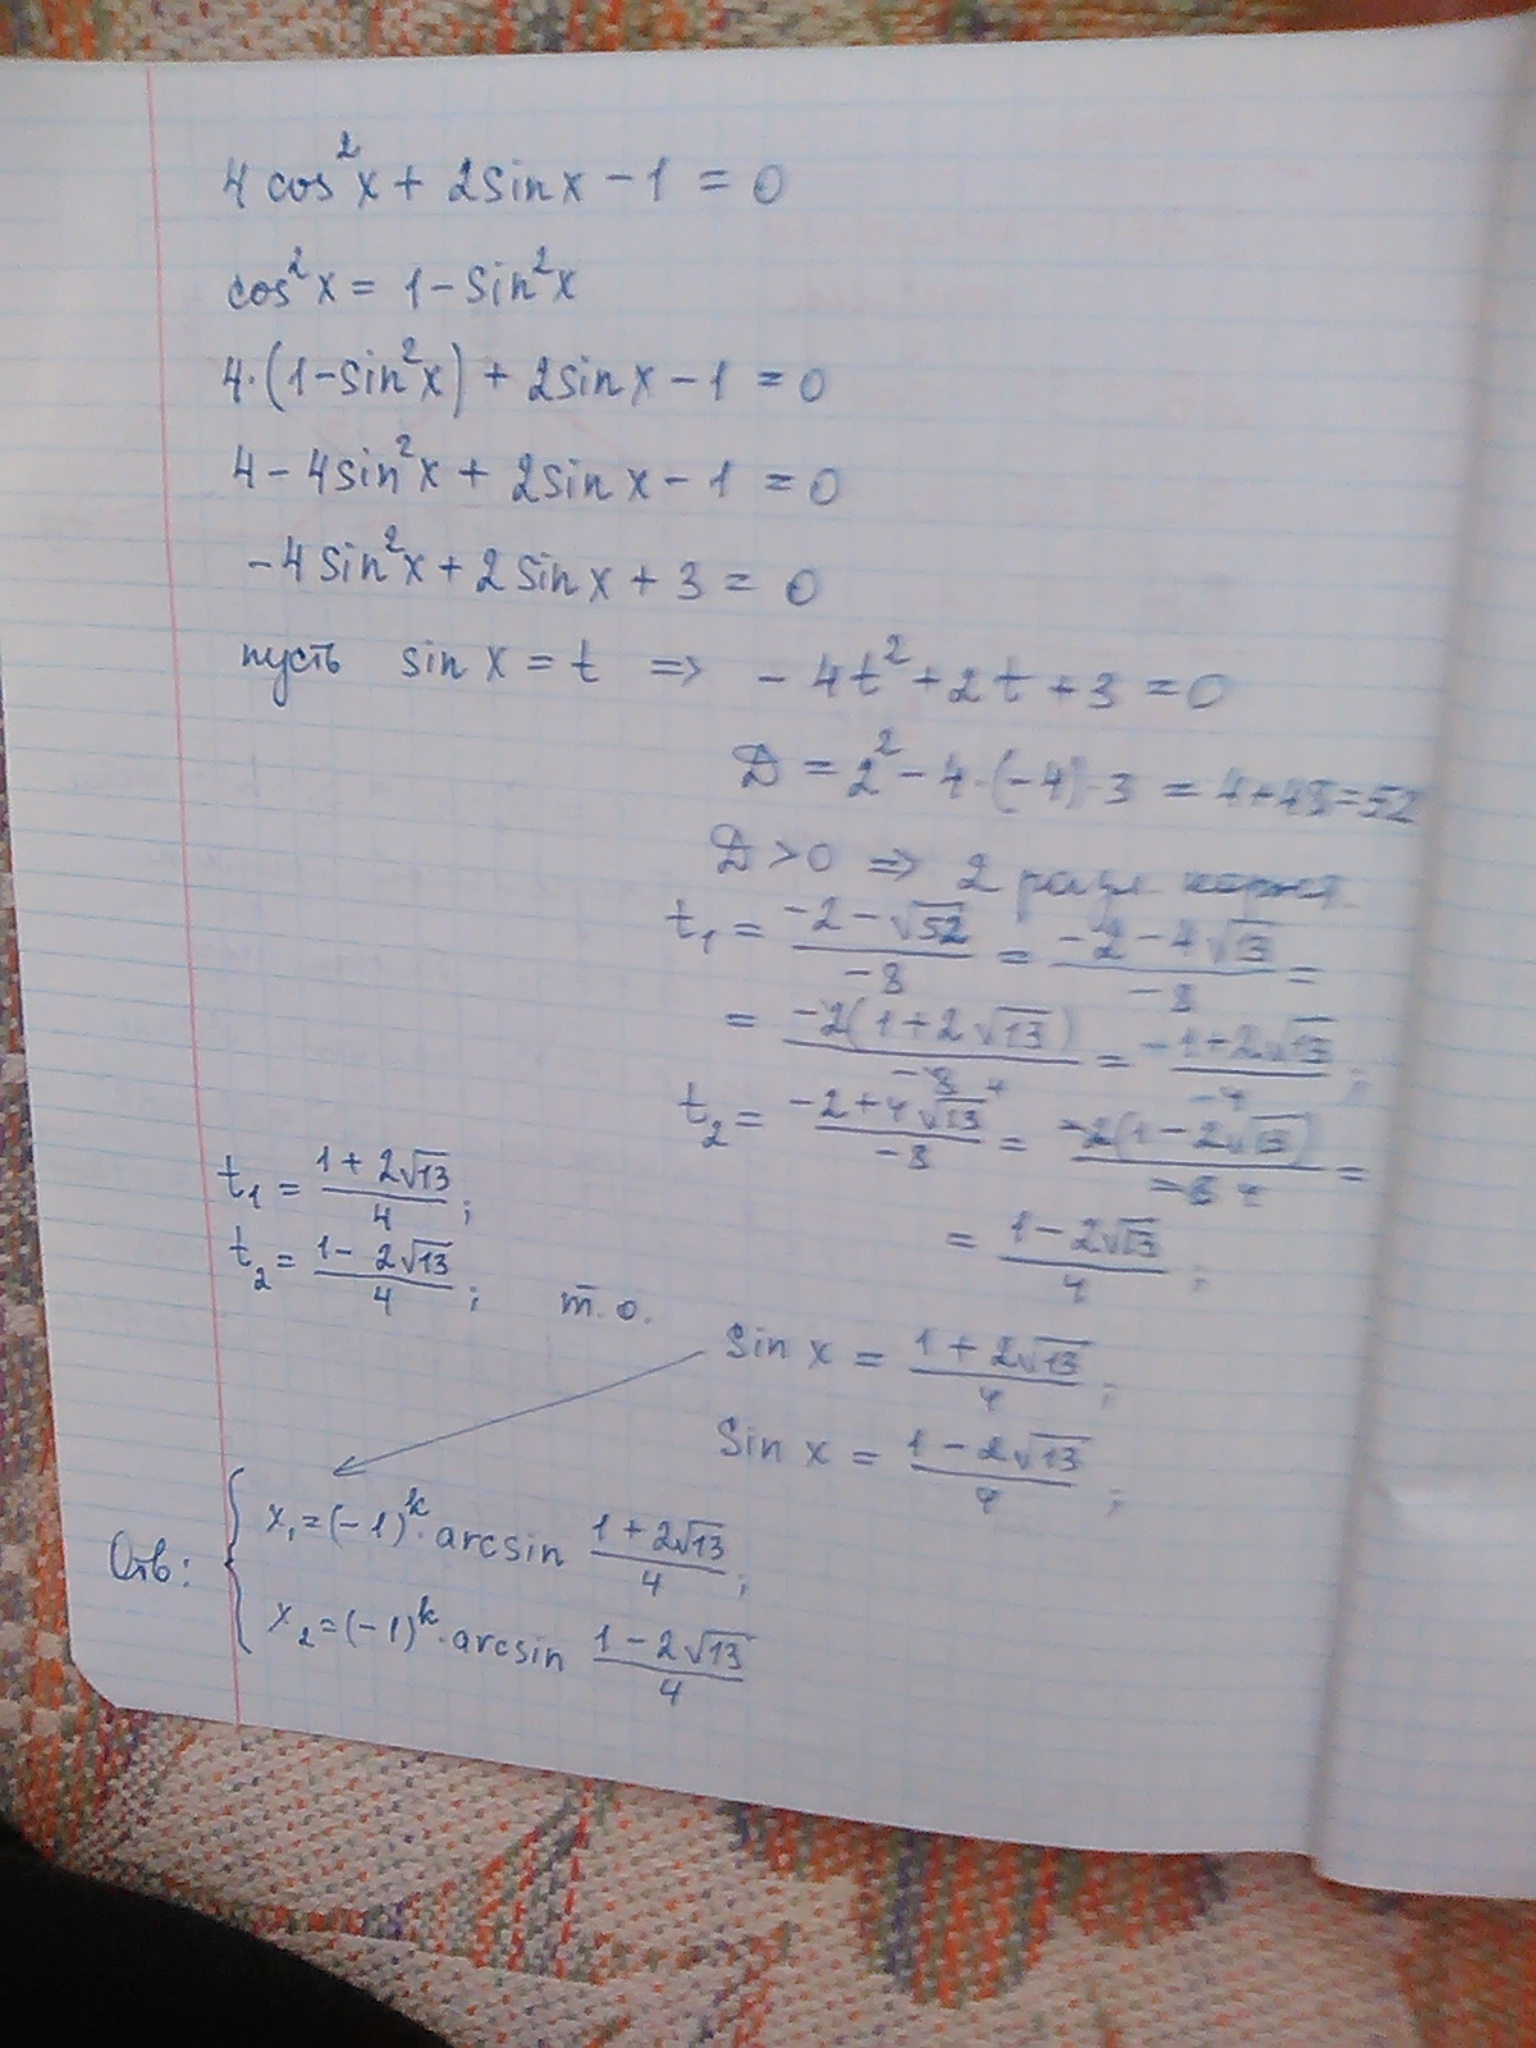 4cos²x + 2sinx - 1 = 0
cos²x = 1 - sin²x
4·(1-sin²x) + 2sinx - 1 = 0
4 - 4sin²x + 2sinx - 1 = 0
-4sin²x + 2sinx + 3 = 0
пусть sinx = t => -4t² + 2t + 3 = 0
D = 2² - 4·(-4)·3 = 4+48=52
D > 0 => 2 разл.
t₁ = (-2-√52)/(-8) = (-2-4√13)/(-8) =
= (-2(1+2√13))/(-8 4) = (-1+2√13)/(-4);
t₂ = (-2+4√13)/(-8) = (-2(1-2√13))/(-8 4) =
= (1-2√13)/4;
t₁ = (1+2√13)/4;
t₂ = (1-2√13)/4; т.о.
Sin x = (1+2√13)/4;
Sin x = (1-2√13)/4;
Отв: { x₁=(-1)ᵏ·arcsin (1+2√13)/4;
x₂=(-1)ᵏ·arcsin (1-2√13)/4